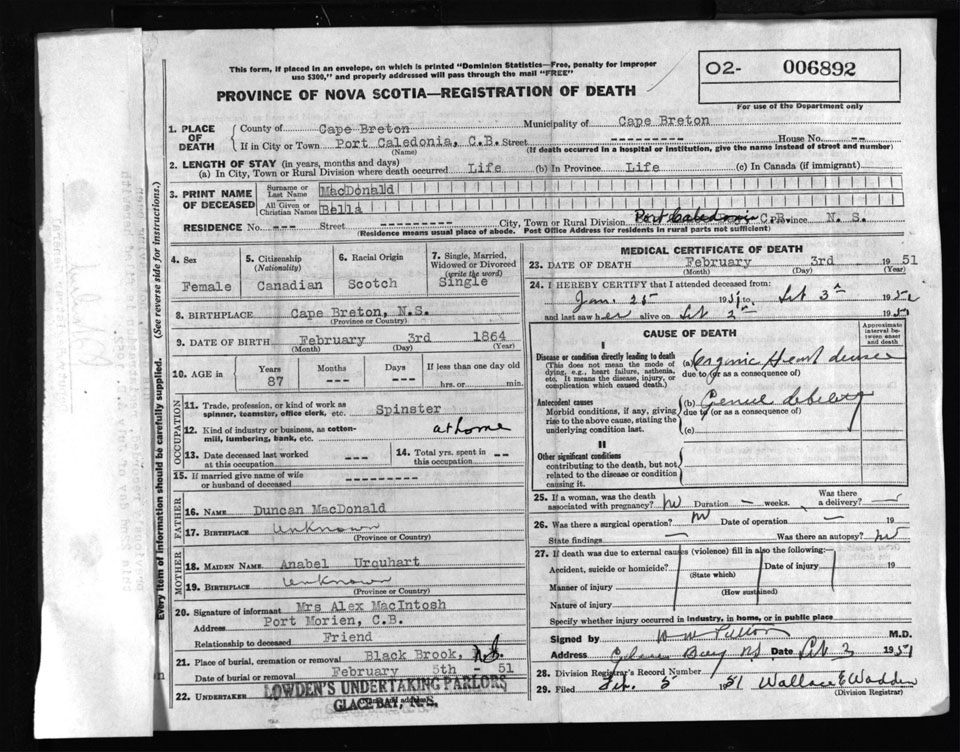 This form, if placed in an envelope, on which is printed "Dominion Statistics—Free, penalty for improper
use $300," and properly addressed will pass through the mail "FREE"
PROVINCE OF NOVA SCOTIA—REGISTRATION OF DEATH
O2- 006892
For use of the Department only
1. PLACE OF DEATH
County of Cape Breton Municipality of Cape Breton
If in City or Town Port Caledonia, C.B. Street -------- House No. --
(Name) (If death occurred in a hospital or institution, give the name instead of street and number)
2. LENGTH OF STAY (in years, months and days)
(a) In City, Town or Rural Division where death occurred Life (b) In Province Life (c) In Canada (if immigrant)
3. PRINT NAME OF DECEASED
Surname or Last Name MacDonald
All Given or Christian Names Bella
RESIDENCE No. --- Street -------- City, Town or Rural Division Port Caledonia C.B. Province N. S.
(Residence means usual place of abode. Post Office Address for residents in rural parts not sufficient)
Every item of information should be carefully supplied. (See reverse side for instructions.)
4. Sex
Female
5. Citizenship
(Nationality)
Canadian
6. Racial Origin
Scotch
7. Single, Married,
Widowed or Divorced
(write the word)
Single
8. BIRTHPLACE Cape Breton, N.S.
(Province or Country)
9. DATE OF BIRTH February 3rd 1864
(Month) (Day) (Year)
10. AGE in
Years 87
Months ---
Days ---
If less than one day old
hrs. or min.
OCCUPATION
11. Trade, profession, or kind of work as
spinner, teamster, office clerk, etc. Spinster
12. Kind of industry or business, as cotton-
mill, lumbering, bank, etc. at home
13. Date deceased last worked
at this occupation ---
14. Total yrs. spent in
this occupation --
15. If married give name of wife
or husband of deceased ---------
FATHER
16. NAME Duncan MacDonald
17. BIRTHPLACE unknown
(Province or Country)
MOTHER
18. MAIDEN NAME Anabel Urquhart
19. BIRTHPLACE unknown
(Province or Country)
20. Signature of informant Mrs Alex MacIntosh
Address Port Morien, C.B.
Relationship to deceased Friend
21. Place of burial, cremation or removal Black Brook, N.S.
Date of burial or removal February 5th - 51
22. UNDERTAKER LOWDEN'S UNDERTAKING PARLORS
GLACE BAY, N. S.
MEDICAL CERTIFICATE OF DEATH
23. DATE OF DEATH February 3rd 1951
(Month) (Day) (Year)
24. I HEREBY CERTIFY that I attended deceased from:
Jan. 25 1951, to 3rd 195
and last saw her alive on 2nd 1951
CAUSE OF DEATH
Approximate
interval be-
tween onset
and death
I
Disease or condition directly leading to death
(This does not mean the mode of
dying, e.g., heart failure, asthenia,
etc. It means the disease, injury, or
complication which caused death.)
(a) Organic Heart disease
due to (or as a consequence of)
Antecedent causes
Morbid conditions, if any, giving
rise to the above cause, stating the
underlying condition last.
(b) debility
due to (or as a consequence of)
(c)
II
Other significant conditions
contributing to the death, but not
related to the disease or condition
causing it.
25. If a woman, was the death
associated with pregnancy? no Duration — weeks. Was there
a delivery? —
26. Was there a surgical operation? no Date of operation — 19
State findings — Was there an autopsy? no
27. If death was due to external causes (violence) fill in also the following:
Accident, suicide or homicide? Date of injury 19
(State which)
Manner of injury
(How sustained)
Nature of injury
Specify whether injury occurred in industry, in home, or in public place
Signed by M.D.
Address Glace Bay NS Date 3 1951
28. Division Registrar's Record Number
29. Filed Feb. 5 1951 Wallace E Wadden
(Division Registrar)